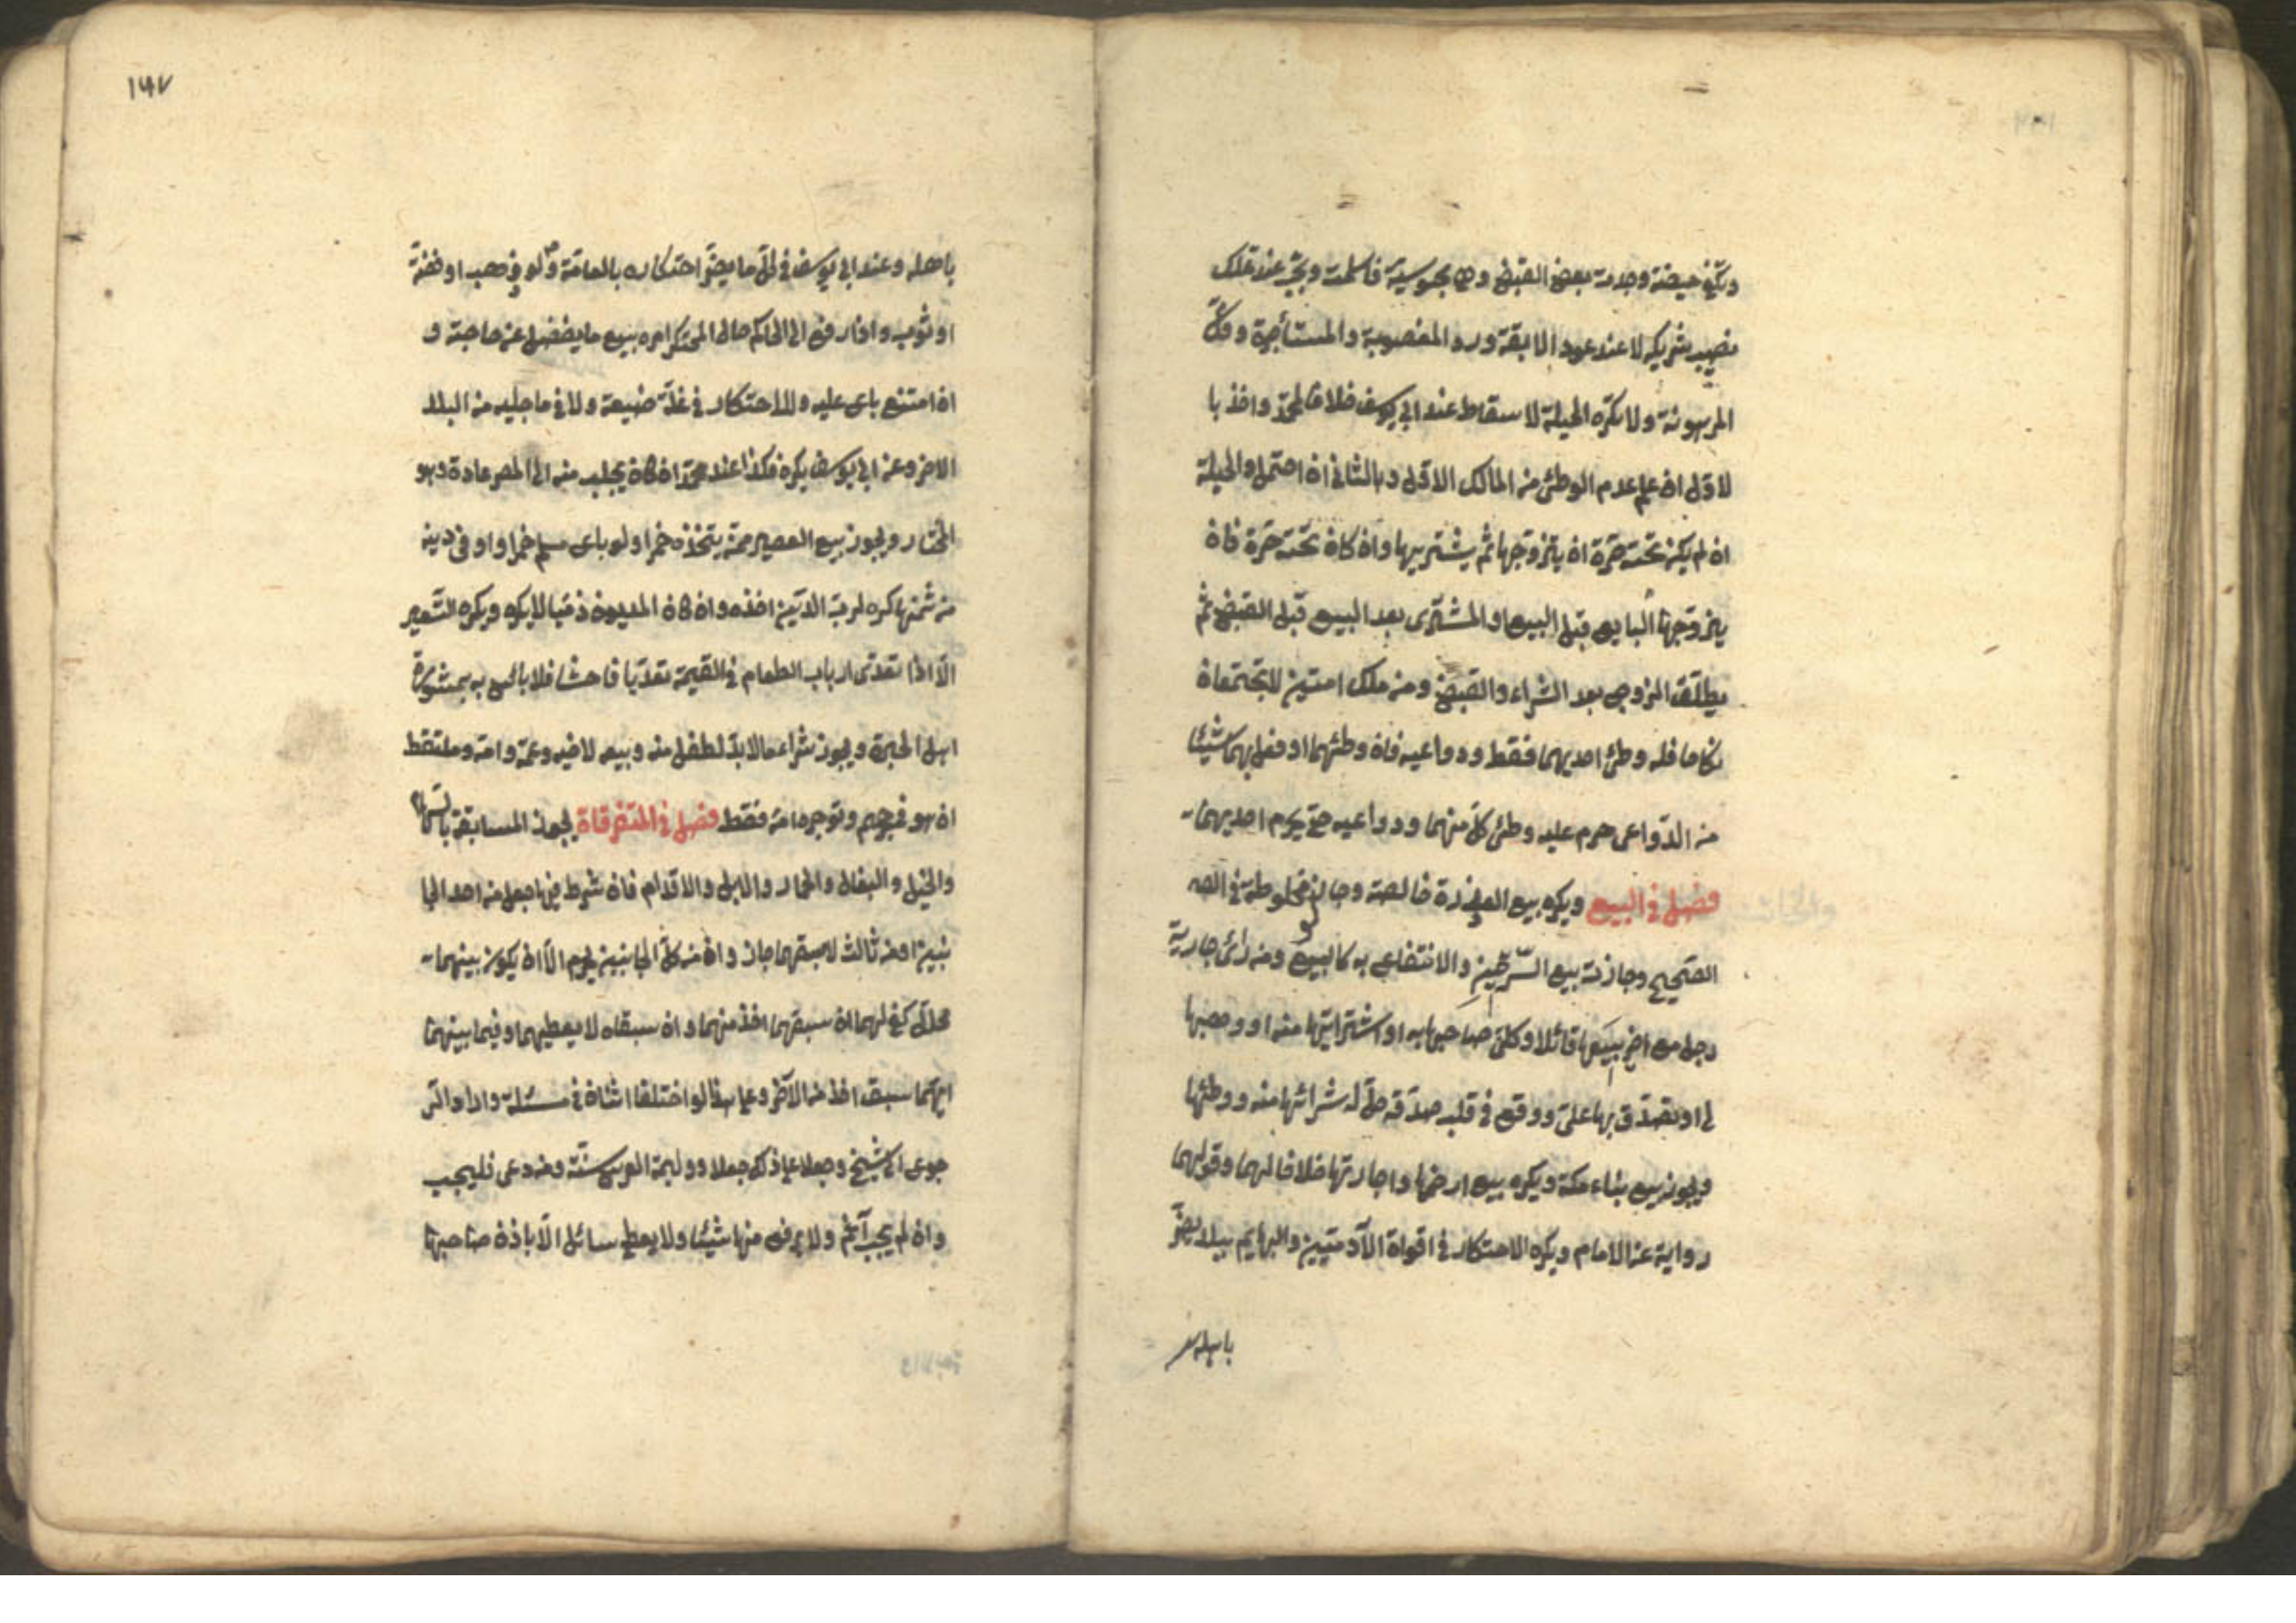 وتكفي حيضة وجدت بعد القبض وهي مجوسية فاسلمت ويجب عند تملك
نصيب شريكه لا عند عود الابقة ورد المغصوبة والمستأجرة وفك
المرهونة ولا تكره الحيلة لاسقاط عند ابي يوسف خلافا لمحمد واخذ با
لاول ان علم عدم الوطئ من المالك الاول وبالثاني ان احتمل والحيلة
ان لم يكن تحته حرة ان يتزوجها ثم يشتريها وان كان تحته حرة فان
يزوجها البايع قبل البيع او المشترى بعد البيع قبل القبض ثم
يطلق الزوج بعد الشراء والقبض ومن ملك امتين لا تجتمعان
نكاحا فله وطئ احديهما فقط ودواعيه فان وطئهما او فعل بهما شيئا
من الدواعى حرم عليه وطئ كل منهما ودواعيه حتى يحرم احديهما
فصل في البيع ويكره بيع العذرة خالصة وجاز مخلوطة في الصـ
الصحيح وجاز بيع السرقين والانتفاع به كالبيع ومن رأى جارية
رجل مع اخر يبيعها قائلا وكلني صاحبها به او اشتريتها منه او وهبها
لي او تصدق بها على ووقع في قلبه صدقه حل له شرائها منه ووطئها
ويجوز بيع بناء مكة ويكره بيع ارضها واجارتها خلافا لهما وقولهما
رواية عن الامام ويكره الاحتكار في اقواة الآدميين والبهايم ببلد يضر
باهله
١٤٧
باهله وعند ابي يوسف في كل ما يضر احتكاره بالعامة ولو ذهب او فضة
او ثوب واذا رفع الى الحاكم حال المحتكر امره ببيع ما يفضل عن حاجته و
ان امتنع باع عليه ولا احتكار في غلة ضيعة ولا في ما جلبه من البلد
الاخر وعند ابي يوسف يكره وكذا عند محمد ان كان يجلب منه الى المصر عادة وهو
المختار ويجوز بيع العصير ممن يتخذه خمرا ولو باع مسلم خمرا واوفى دينه
من ثمنها كره لرب الدين اخذه وان كان المديون ذميا لا يكره ويكره التسعير
الا اذا تعدى ارباب الطعام في القيمة تعديا فاحشا فلا بأس به بمشورة
اهل الخبرة ويجوز شراء ما لا بد لطفل منه وبيعه لاخيه وعمه وامه وملتقط
ان هو في حجرهم وتوجره امه فقط فصل في المتفرقاة يجوز المسابقة بالسهام
والخيل والبغال والحمار والابل والاقدام فان شرط فيها جعل من احد الجا
نبين او من ثالث لاسبقهما جاز وان من كل الجانبين يحرم الا ان يكون بينهما
محلل كفؤ لهما ان سبقهما اخذ منهما وان سبقاه لا يعطيهما وفيما بينهما
ايهما سبق اخذ من الآخر وعلى هذا لو اختلفا اثنان في مسئلة وارادا الر
جوع الى شيخ وجعلا على ذلك جعلا ووليمة العرس سنة ومن دعى فليجب
وان لم يجب آثم ولا يرفع منها شيئا ولا يعطى سائل الا باذن صاحبها